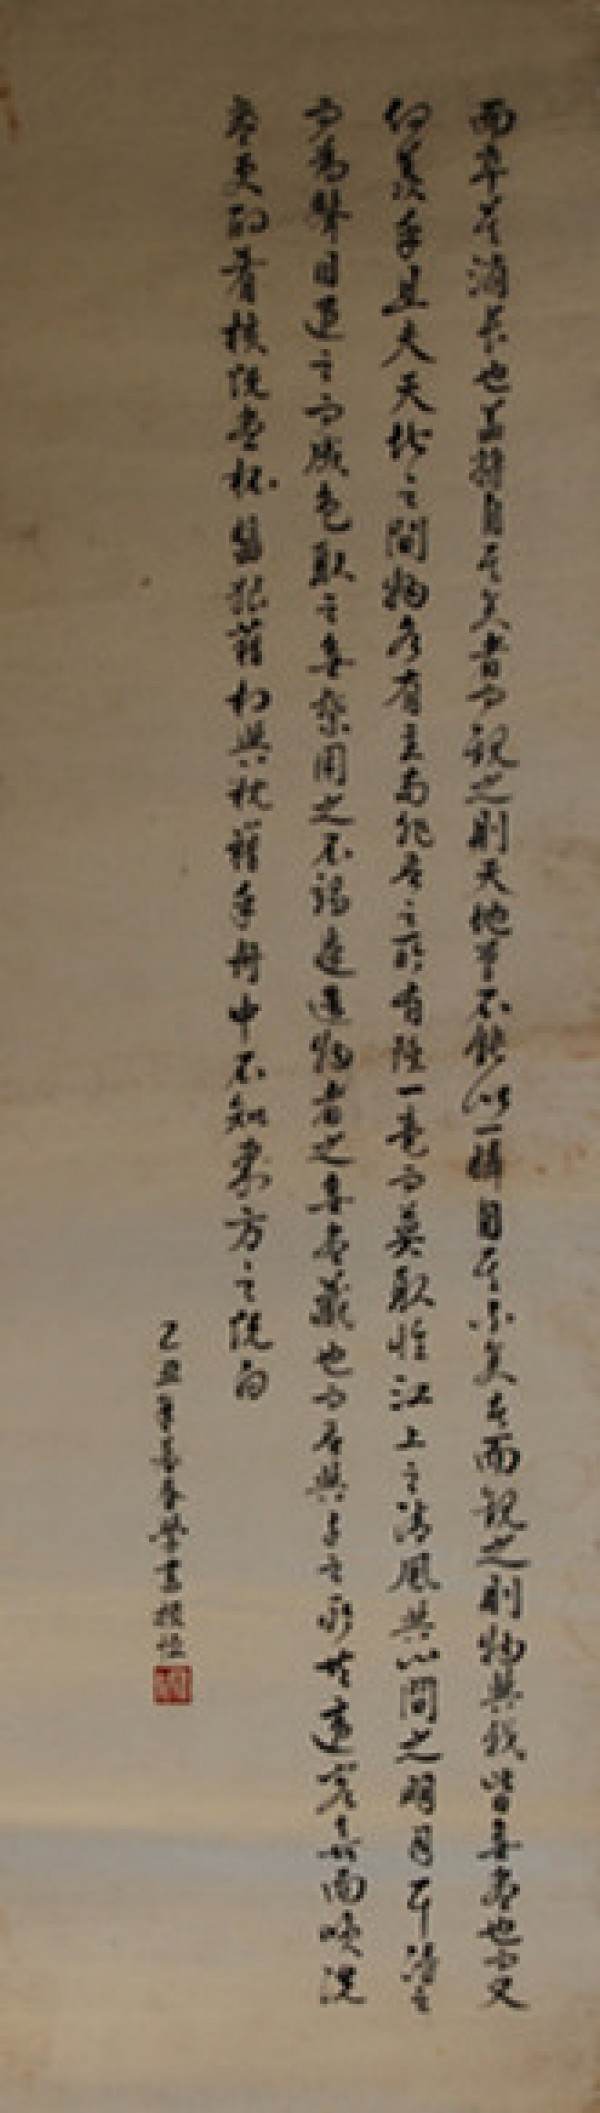 而卒莫消長也蓋將自其变者而觀之則天地曾不能以一瞬自其不变者而觀之則物與我皆無盡也而又
何羨乎且夫天地之間物各有主苟非吾之所有雖一毫而莫取惟江上之清風與山間之明月耳得之
而為聲目遇之而成色取之無禁用之不竭是造物者之無盡藏也而吾與子之所共適客喜而笑洗
盞更酌肴核既盡杯盤狼藉相與枕藉乎舟中不知東方之既白
乙丑年春學書